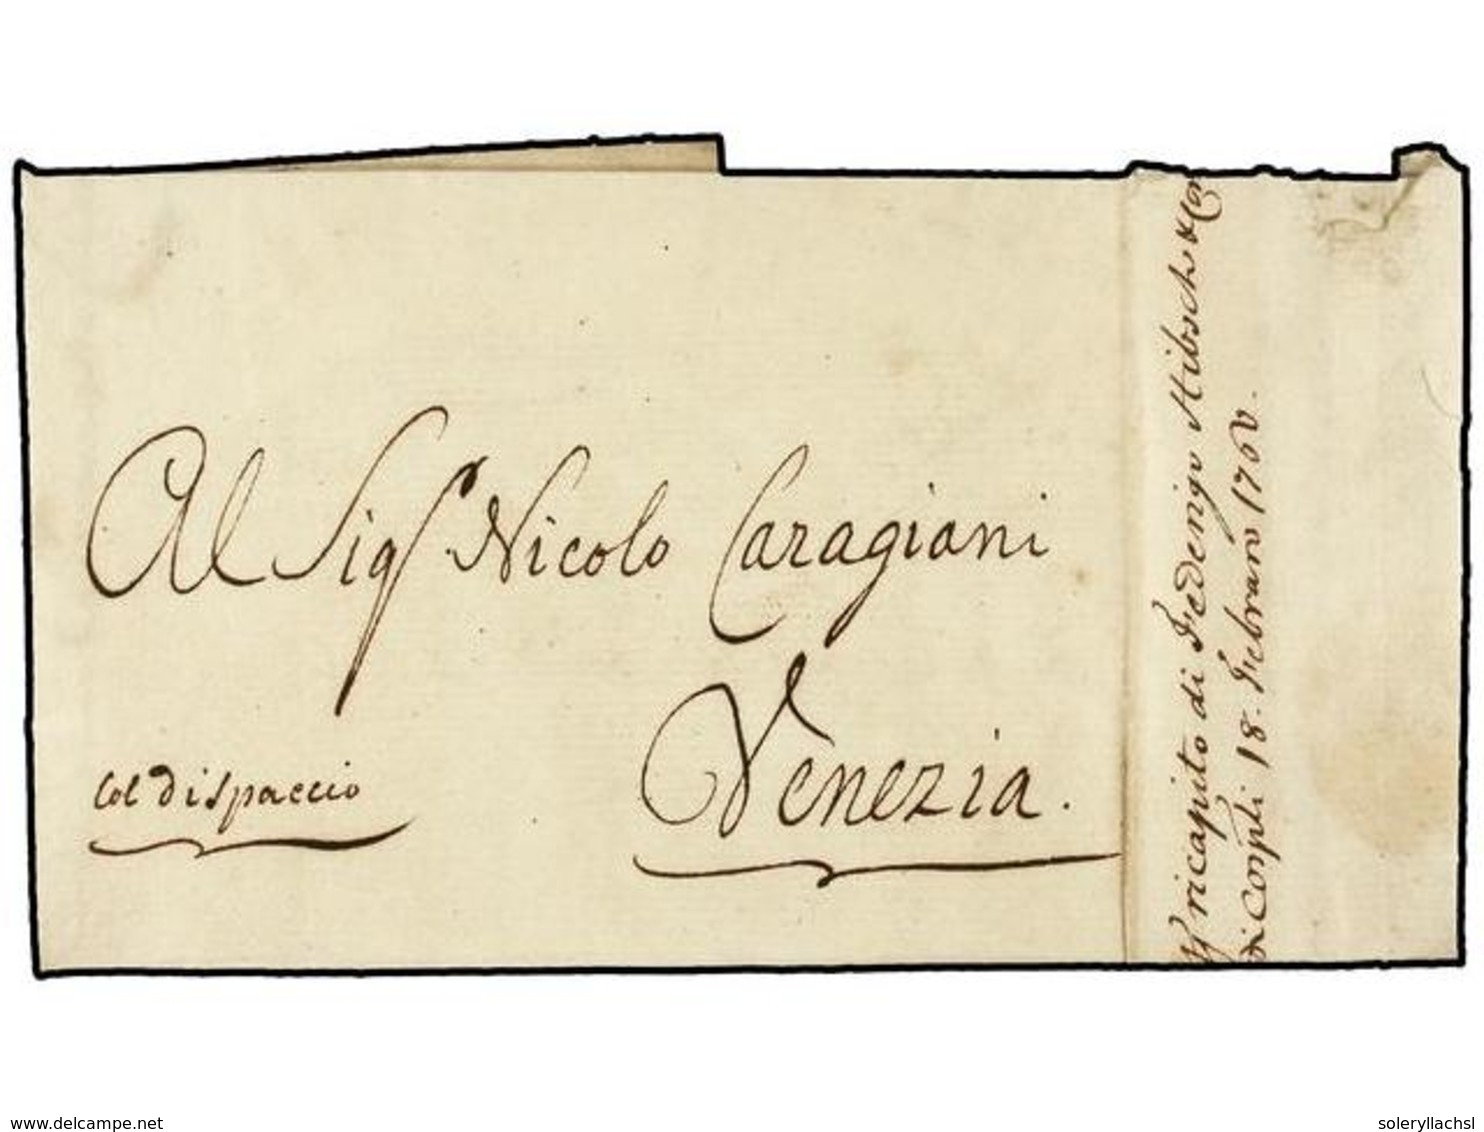 Al Sigr Nicolo Caragiani
Venezia.
Col dispaccio
ricapito di Federigo Hibsch & Com
di Conpli 18. Febraro 176
www.delcampe.net
soleryllachsl